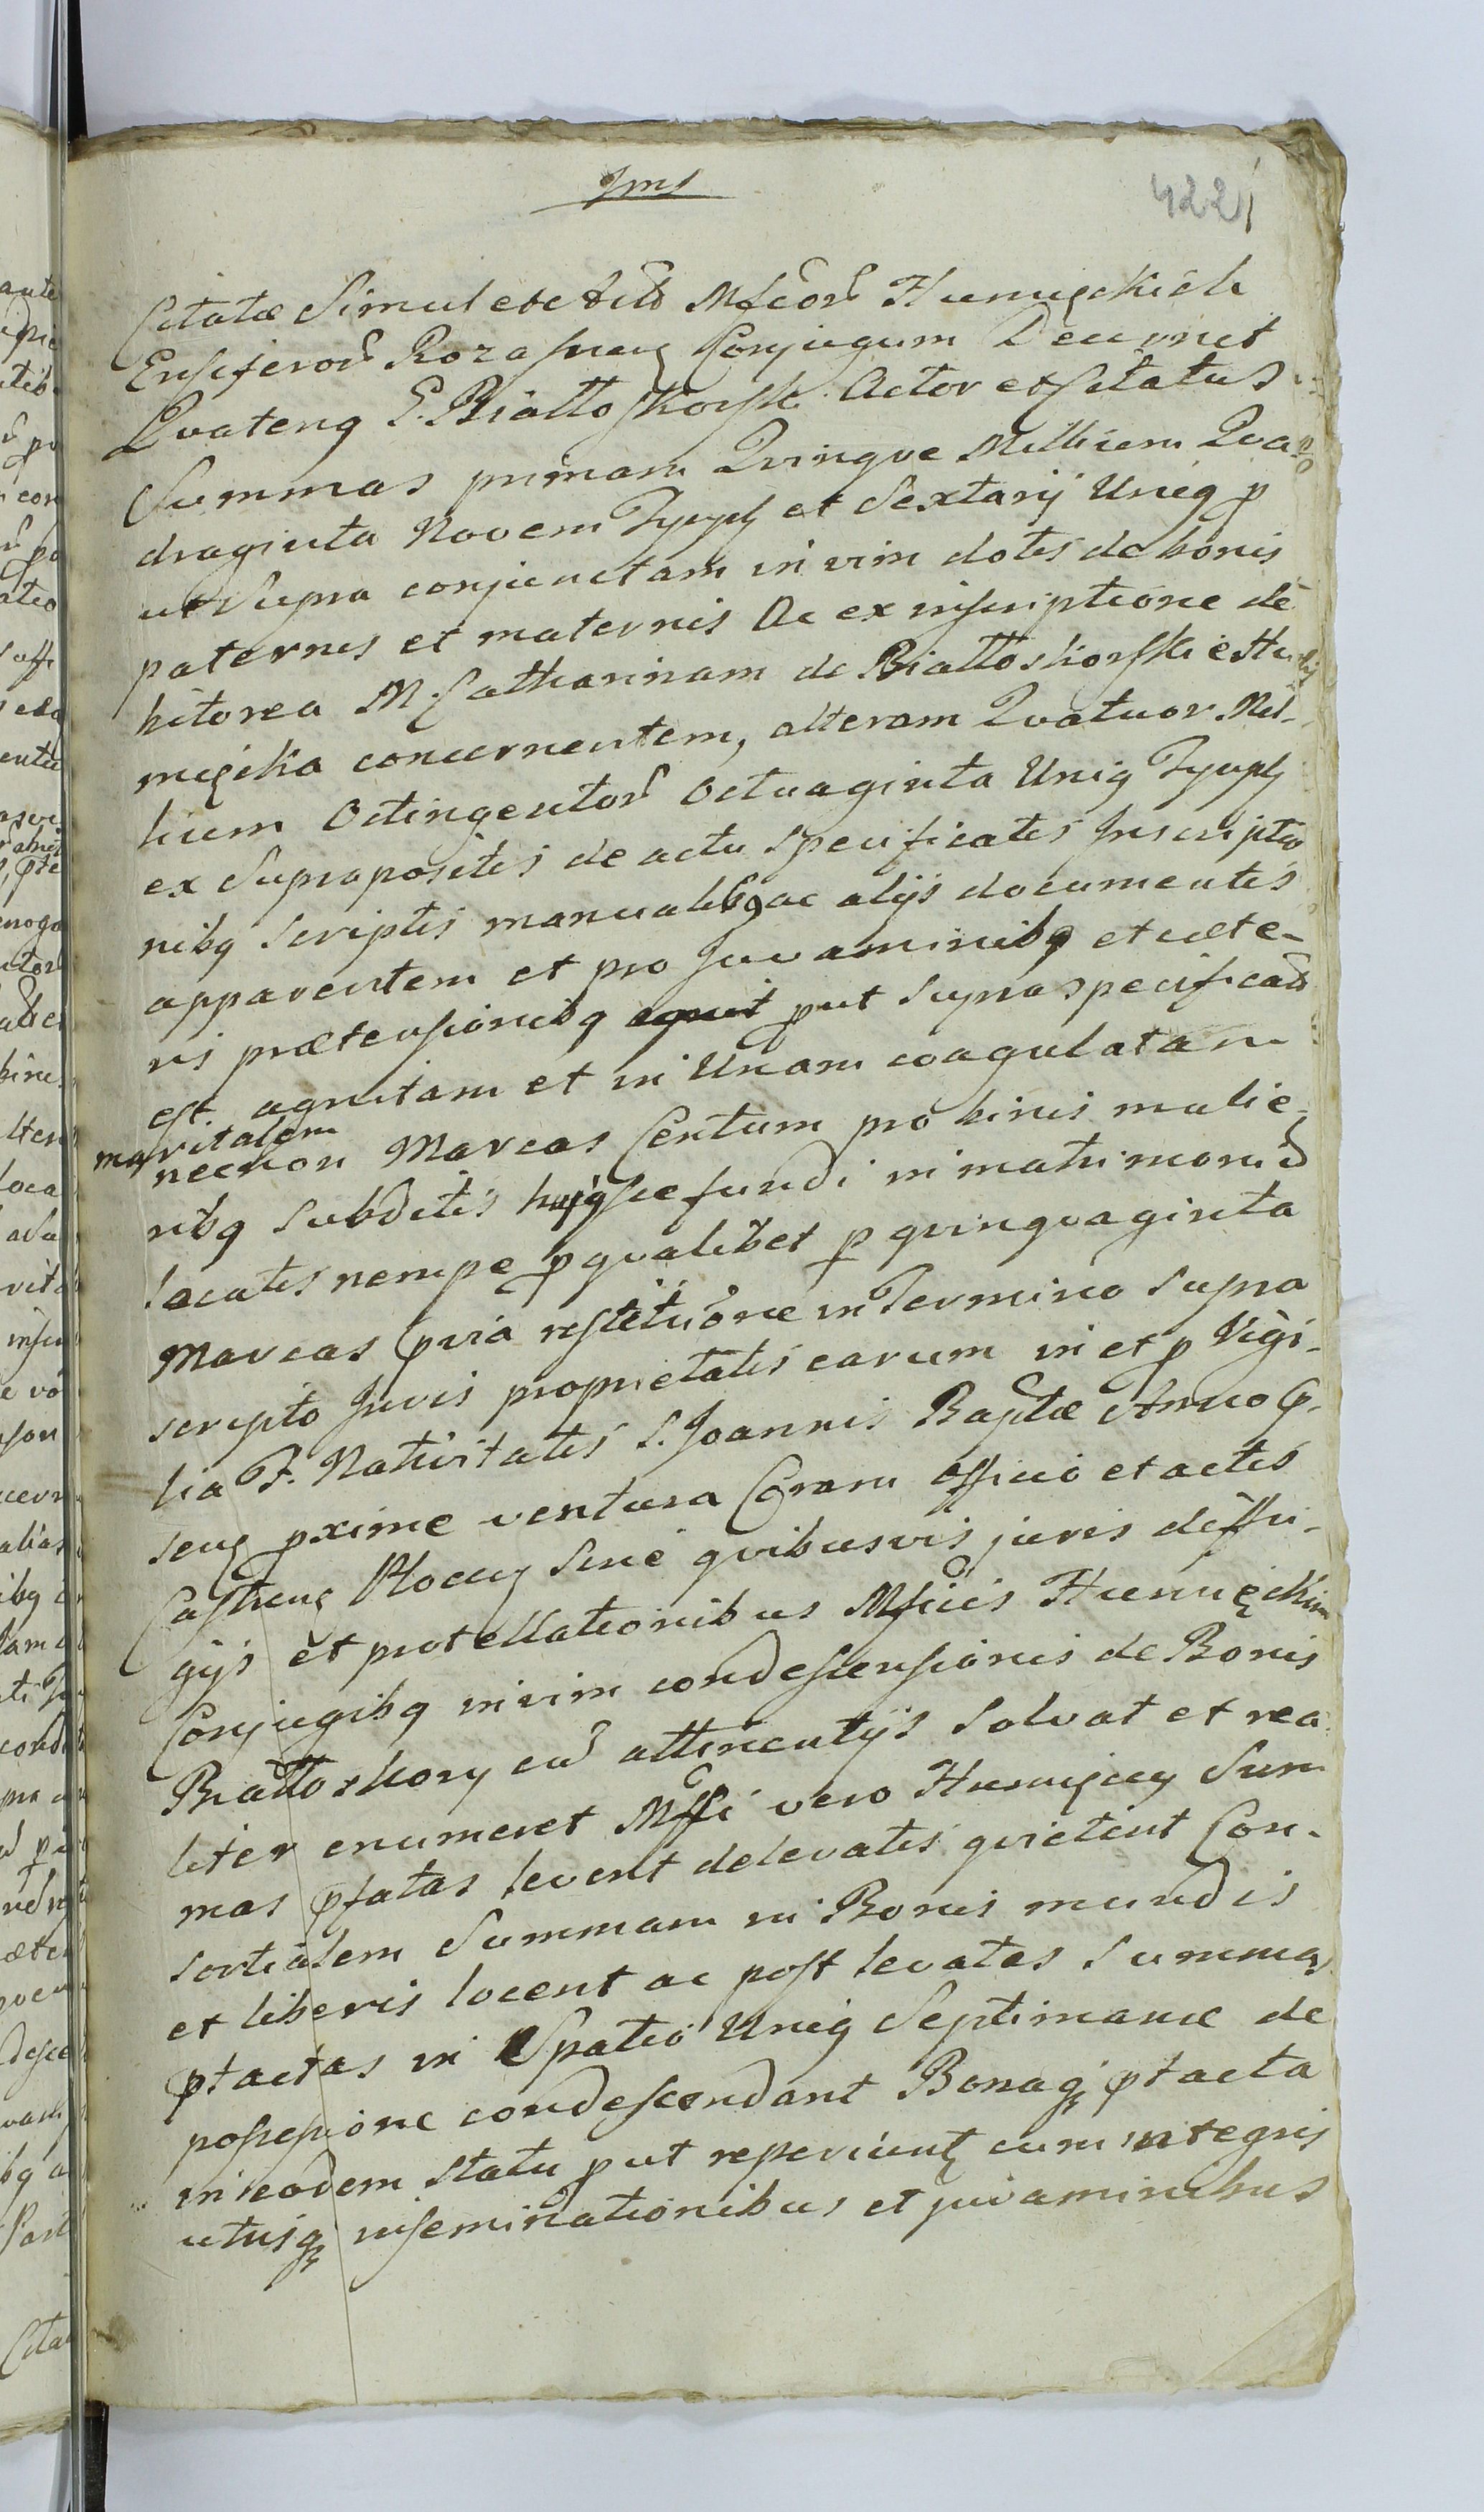 422
Citatæ Simul etc Mfcor Humięckich
Ensiferor Rozaneng Conjugum Decernit
Quateng G. Białłoskorski Actor et Citatus
Summas primam Quinque Millium Qua-
draginta Novem Tynph et Sextarij Unig p
ut Supra conjunctam in vim dotis de bonis
paternis et maternis Ac ex inscriptione de
bitorea M Catharinam de Białłoskorskie Hu
mięcka concernentem, alteram Quatuor Mil-
lium Octingentor Octuaginta Unig Tynph
ex Supra positis de actu Specificatis Inscriptio
nibq Scriptis manualibq ac alijs documentis
apparentem et pro Juvaminibq et cæte-
ris prætensionibq put Supra specificat
est agnitam et in Unam coagulatam
maritalem
necnon Marcas Centum pro binis mulie-
ribq Subditis hujqce fundi in matrimoniu
locatis nempe p qualibet p quinquaginta
Marcas pvia restitutione in Termino Supra
scripto Juris proprietatis earum in et p Vigi-
lia F. Nativitatis S. Joannis Baptæ Anno p-
senq pxime ventura Coram Officio et actis
Castreng Ploceng Sine quibusvis juris diffu-
gijs et protellationibus Mficis Humięckim
Conjugibq in vim condescensionis de Bonis
Białłoskory cu attinentijs Solvat et rea
liter enumeret Mffi vero Humięccy Sum
mas pfatas levent de levatis quietent Con-
sortialem Summam in Bonis mundis
et liberis locent ac post levatas Summas
ptactas in Spatio Uniq Septimanæ de
possessione condescendant Bonaq ptacta
in eodem Statu put reperiunt cum integris
utrisq inseminationibus et juvaminibus